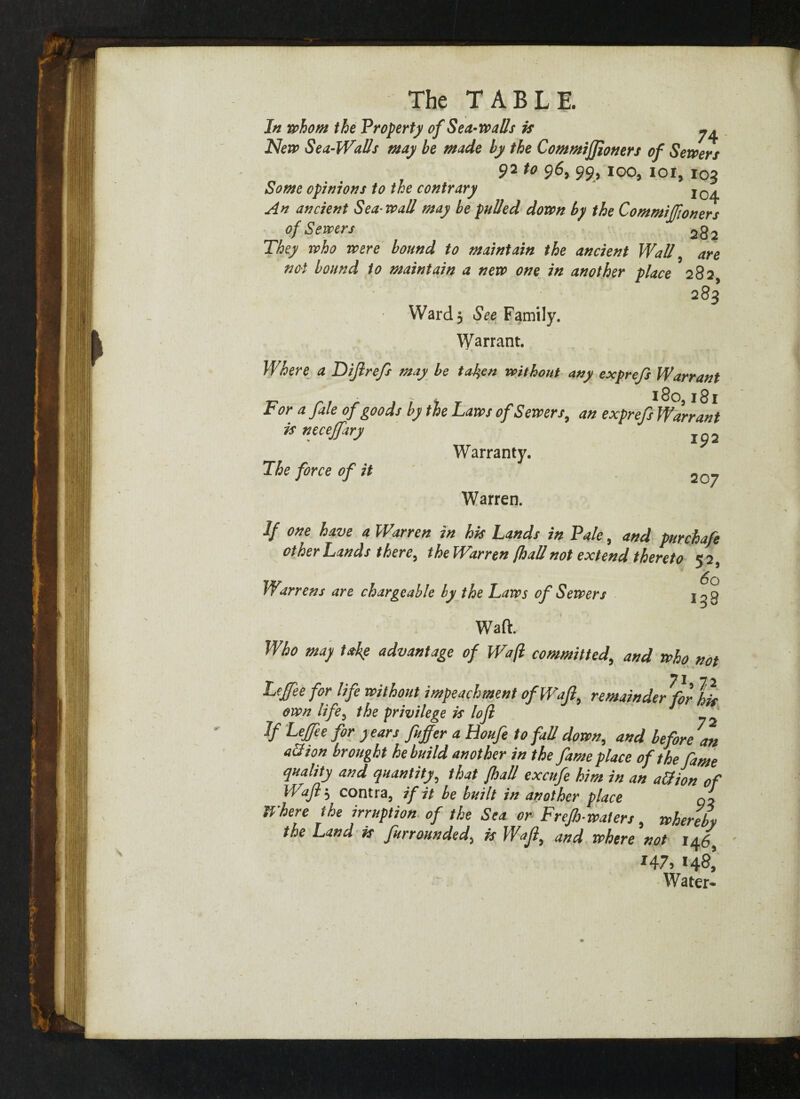 The TABLE.
In whom the Property of Sea-walls is 74
New Sea-Walls may be made by the Commiſſioners of Sewers
92 to 96, 99, 100, 101, 103
Some opinions to the contrary 104
An ancient Sea-wall may be pulled down by the Commiſſioners
of Sewers 282
They who were bound to maintain the ancient Wall, are
not bound to maintain a new one in another place 282,
283
Ward; See Family.
Warrant.
Where a Diſtreſs may be taken without any expreſs Warrant
180, 181
For a ſale of goods by the Laws of Sewers, an expreſs Warrant
is neceſſary 192
Warranty.
The force of it 207
Warren.
If one have a Warren in his Lands in Pale, and purchaſe
other Lands there, the Warren ſhall not extend thereto 52,
60
Warrens are chargeable by the Laws of Sewers 138
Waſt.
Who may take advantage of Waſt committed, and who not
71, 72
Leſſee for life without impeachment of Waſt, remainder for his
own life, the privilege is loſt 72
If Leſſee for years ſuffer a Houſe to fall down, and before an
action brought he build another in the ſame place of the ſame
quality and quantity, that ſhall excuſe him in an action of
Waſt; contra, if it be built in another place 93
Where the irruption of the Sea or Freſh-waters, whereby
the Land is ſurrounded, is Waſt, and where not 146,
147, 148,
Water-